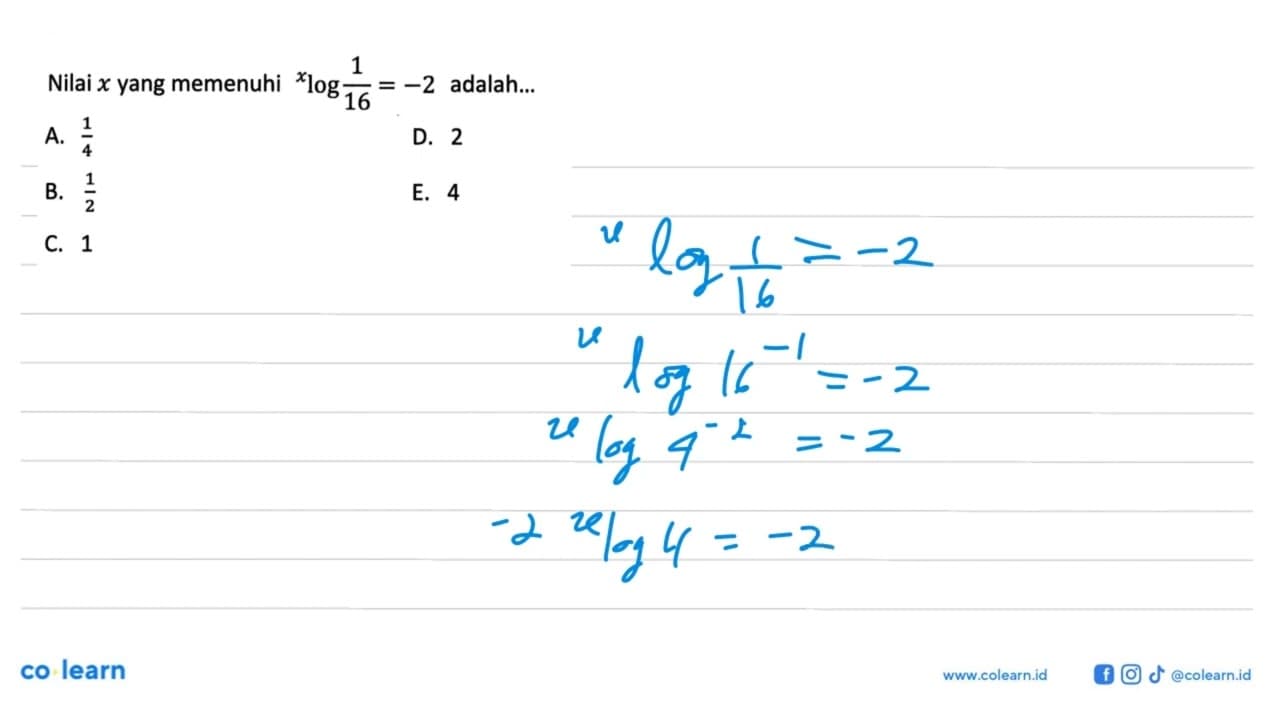 Nilai x yang memenuhi ˣlog 1/16 = −2 adalah...
A. 1/4
D. 2
B. 1/2
E. 4
C. 1
ˣlog 1/16 = −2
ˣlog 16⁻¹ = −2
ˣlog 4⁻² = −2
−2 ˣlog 4 = −2
co learn
www.colearn.id
@colearn.id